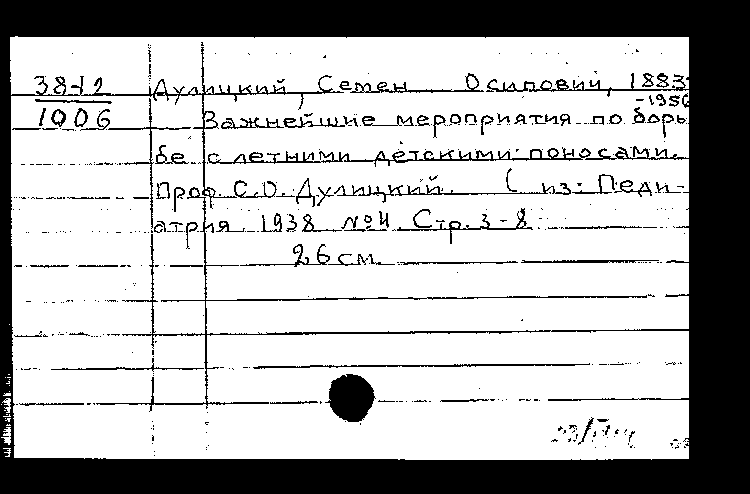 38-12 Дулицкий, Семен Осипович, 1883-
1006 -1956
Важнейшие мероприятия по борь
бе с летними детскими поносами.
Проф. С.О. Дулицкий. (из: Педи-
атрия 1938 №4. Стр. 3-8
26 см.